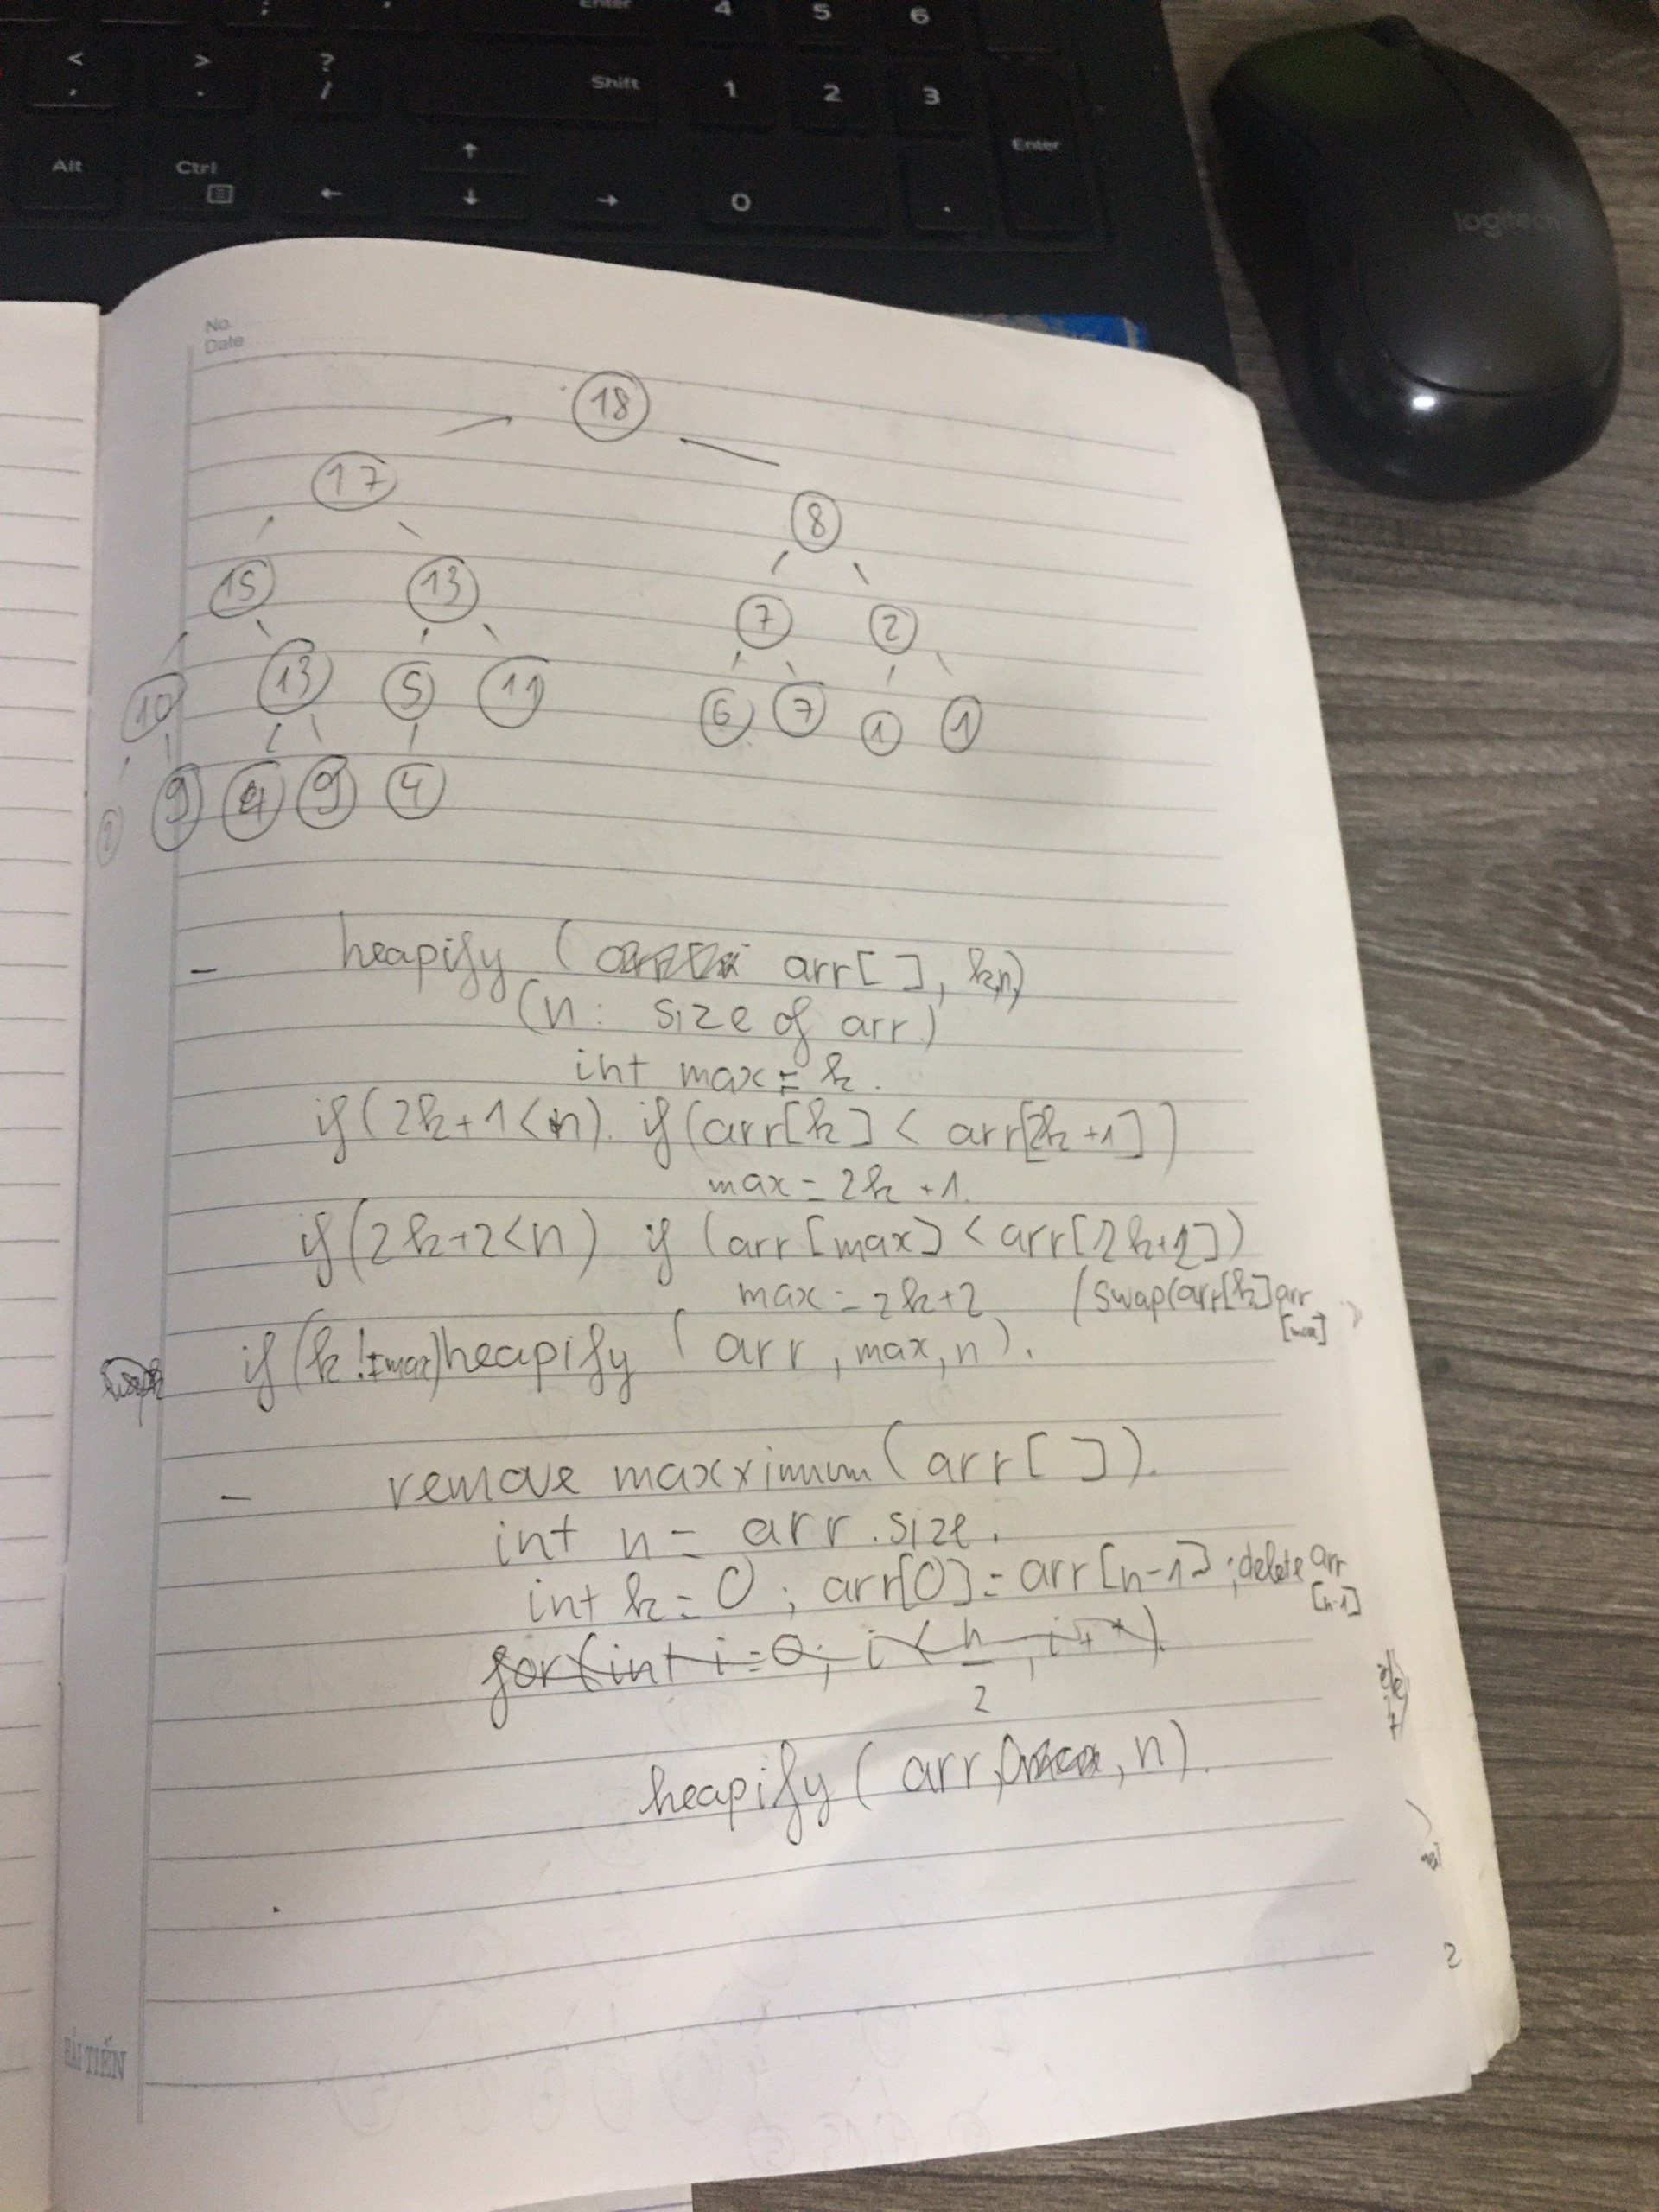 Enter 4 5 6
< > ?
, . / Shift 1 2 3
Enter
Alt Ctrl ↑
← ↓ → 0 .
logitech
No.
Date
18
17 8
15 13 7 2
10 13 5 11 6 7 1 1
9 4 9 4
- heapify ( arr[ ], k,n)
(n: size of arr)
int max = k.
if(2k+1<n). if(arr[k] < arr[2k+1])
max = 2k+1.
if(2k+2<n) if (arr[max] < arr[2k+2])
max = 2k+2 /swap(arr[k]arr
[max]
if(k!=max)heapify (arr, max, n).
- remove maxximum(arr[ ]).
int n = arr.size.
int k = 0; arr[0] = arr[n-1]; delete arr
[n-1]
for(int i=0; i< n/2, i++).
heapify (arr, , n).
2
HẢI TIẾN